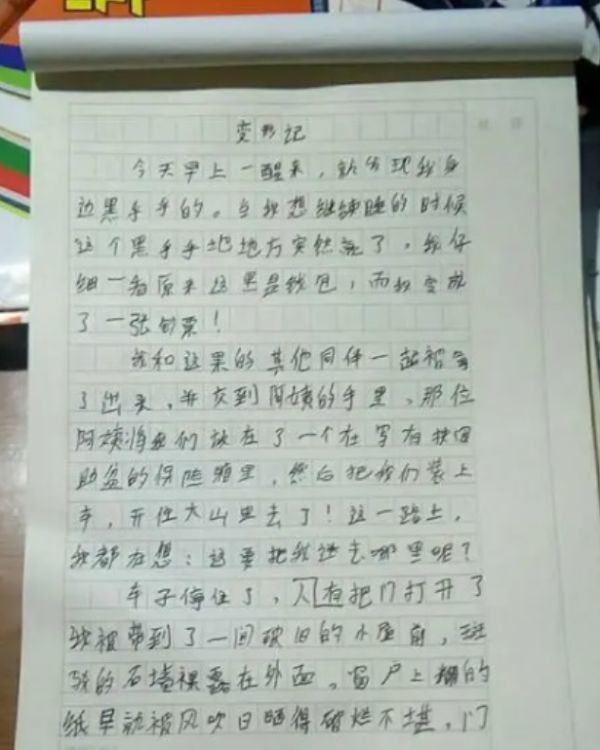 变形记
今天早上一醒来，就发现我身
边黑乎乎的。当我想继续睡的时候
这个黑乎乎地地方突然亮了，我仔
细一看原来这里是钱包，而我变成
了一张钞票！
我和这里的其他同伴一起被拿
了出来，并交到阿姨的手里，那位
阿姨将我们放在了一个在写有扶困
助盆的保险箱里，然后把我们装上
车，开往大山里去了！这一路上，
我都在想：这要把我送去哪里呢？
车子停住了，人有把门打开了
我被带到了一间破旧的小屋前，
的石墙裸露在外面，窗户上糊的
纸早就被风吹日晒得破烂不堪，门